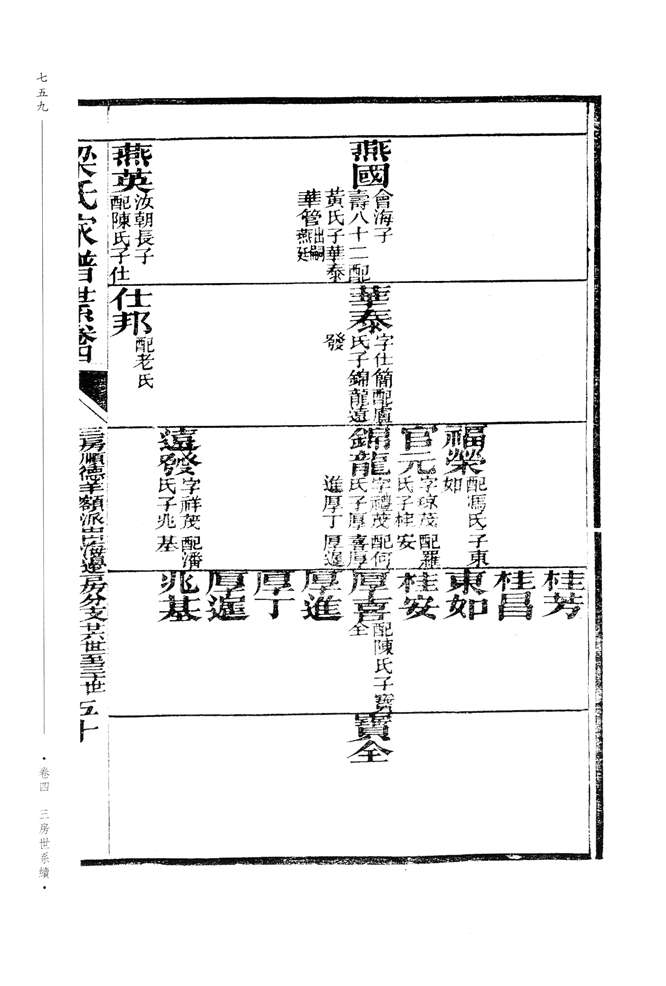 燕國
會海子
壽八十二配
黃氏子華泰
華管出嗣燕廷
燕英
汝朝長子
配陳氏子仕
華泰
字仕簡配盧
氏子錦龍遠
發
仕邦
配老氏
福榮
配馮氏子東
如
官元
字琼茂配羅
氏子桂安
錦龍
字禮茂配何
氏子厚喜厚
進厚丁厚暹
遠發
字祥茂配潘
氏子兆基
桂芳
桂昌
東如
桂安
厚喜
配陳氏子寶
全
厚進
厚丁
厚暹
兆基
寶全
梁氏家譜世系卷四
三房順德羊額派出海邊房分支廿六世至三十世
五十
七五九
·卷四 三房世系續·